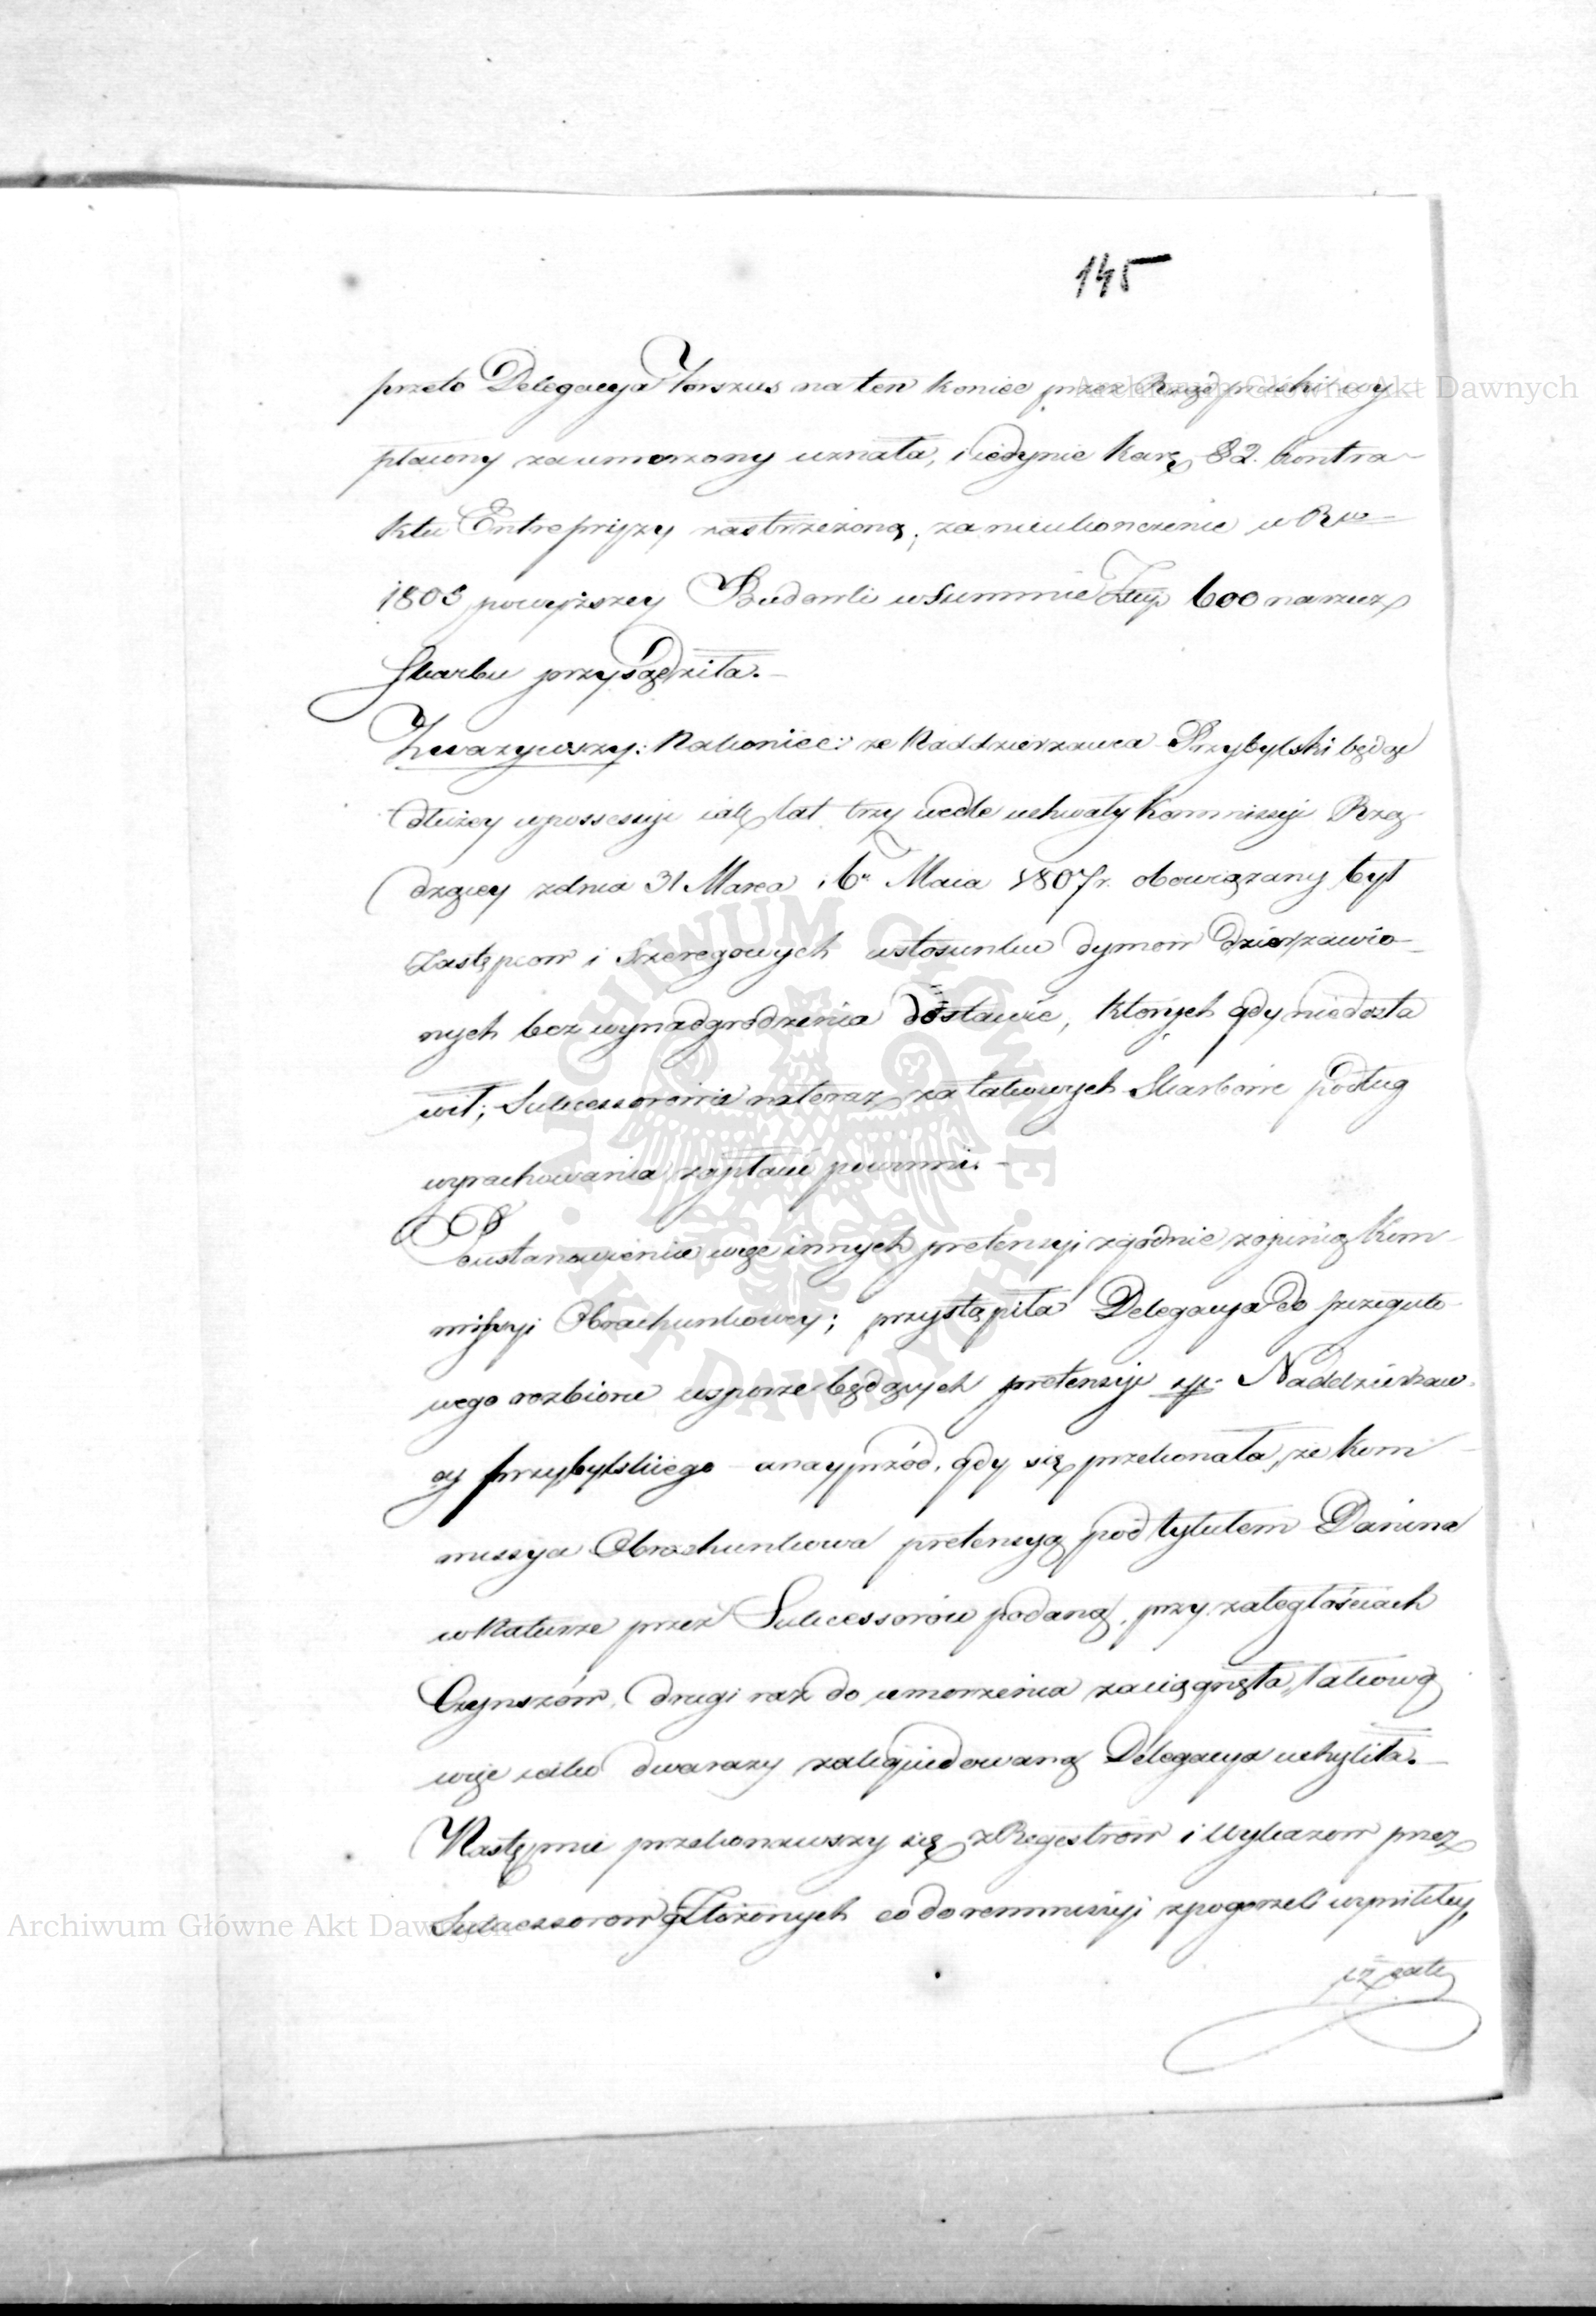 145
przeto Delegacya Forszus na ten koniec przez Rząd pruski wy
płacony za umorzony uznała, i iedynie karę 82. kontra-
ktu Entrepryzy zastrzeżoną, za nieukończenie w Rue
1805 powyższey Budowli w Summie Złłp 600 na rzecz
Skarbu przysądziła.-
Zważywszy: Nakoniec: że Naddzierzawca Przybylski będąc
dłużey w possessyi iak lat trzy wedle uchwały Kommissyi Rzą-
dzącey z dnia 31 Marca i 6go Maia 1807 r. obowiązany był
Zastępcow i Szeregowych w stosunku dymow dzierzawio-
nych bez wynadgrodzenia dostawić, których gdy niedosta
wił; Sukcessorowie na teraz za takowych Skarbowi podług
wyrachowania zapłacić powinni.-
Poustanowieniu więc innych pretensyi zgodnie z opinią Kom-
missyi Obrachunkowey; przystąpiła Delegacya do szczeguło-
wego rozbioru w sporze będących pretensyi Naddzierzaw-
cy Przybylskiego a nayprzód, gdy się przekonała, że Kom-
missya Obrachunkowa pretensyą pod tytułem Danina
w Naturze przez Sukcessorów podaną, przy zaległościach
Czynszów, drugi raz do umorzenia zaciągnęła, takową
więc iako dwa razy zalikwidowaną Delegacya uchyliła.-
Następnie przekonawszy się z Regestrów i Wykazow przez
Sukcessorow złożonych co do remmissyi z pogorzeli wynikłey,
iż
Archiwum Główne Akt Dawnych
Archiwum Główne Akt Dawnych
ARCHIWUM GŁÓWNE AKT DAWNYCH